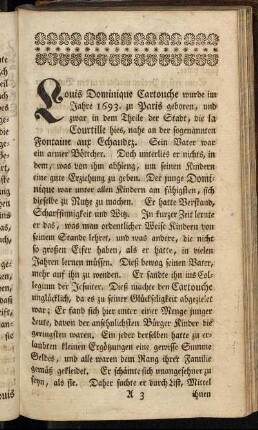 Louis Dominique Cartouche wurde im
Jahre 1693. zu Paris geboren, und
zwar in dem Theile der Stadt, die la
Courtille hies, nahe an der sogenannten
Fontaine aux Echandez. Sein Vater war
ein armer Böttcher. Doch unterlies er nichts, in
dem, was von ihm abhieng, um seinen Kindern
eine gute Erziehung zu geben. Der junge Domi-
nique war unter allen Kindern am fähigsten, sich
dieselbe zu Nutze zu machen. Er hatte Verstand,
Scharfsinnigkeit und Witz. In kurzer Zeit lernte
er das, was man ordentlicher Weise Kindern von
seinem Stande lehret, und was andere, die nicht
so großen Eifer haben, als er hatte, in vielen
Jahren lernen müssen. Dieß bewog seinen Vater,
mehr auf ihn zu wenden. Er sandte ihn ins Col-
legium der Jesuiter. Dieß machte den Cartouche
unglücklich, da es zu seiner Glückseligkeit abgezielet
war; Er fand sich hier unter einer Menge junger
Leute, davon der ansehnlichsten Bürger Kinder die
geringsten waren. Ein jeder derselben hatte zu er-
laubten kleinen Ergötzungen eine gewisse Summe
Geldes, und alle waren dem Rang ihrer Familie
gemäß gekleidet. Er schämte sich unangesehner zu
seyn, als sie. Daher suchte er durch List, Mittel
A 3 ihnen